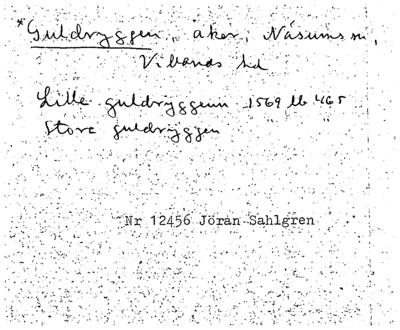 *Guldryggen, åker, Näsums sn,
Villands hd
Lille guldryggenn 1569 lb 465
Store guldryggen
Nr 12456 Jöran Sahlgren